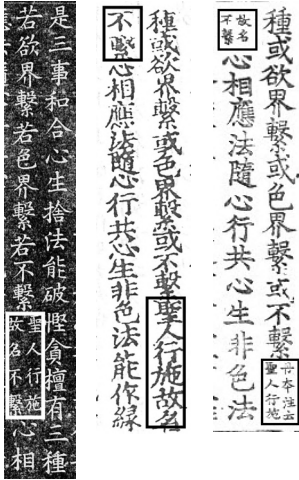 種或欲界繫或色界繫或不繫丹本注云聖人行施
故名不繫心相應法隨心行共心生非色法
種或欲界繫或色界繫或不繫聖人行施故名
不繫心相應法隨心行共心生非色法能作緣
是三事和合心生捨法能破慳貪檀有三種
若欲界繫若色界繫若不繫聖人行施故名不繫心相